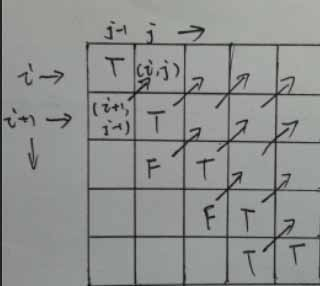 j-1 j →
i → T (i,j)
i+1 → (i+1, j-1) T
↓ F T
F T
T T